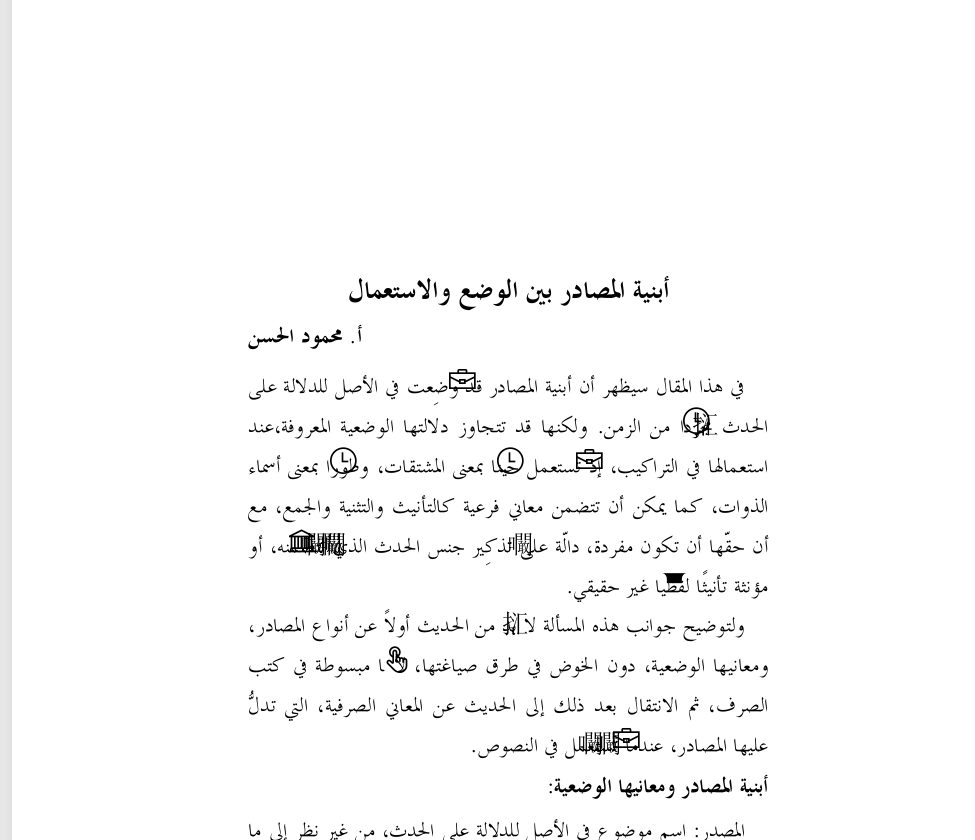 أبنية المصادر بين الوضع والاستعمال
أ. محمود الحسن
في هذا المقال سيظهر أن أبنية المصادر قد وضِعت في الأصل للدلالة على
الحدث من الزمن. ولكنها قد تتجاوز دلالتها الوضعية المعروفة،عند
استعمالها في التراكيب، إذ تستعمل حينا بمعنى المشتقات، وطورا بمعنى أسماء
الذوات، كما يمكن أن تتضمن معاني فرعية كالتأنيث والتثنية والجمع، مع
أن حقّها أن تكون مفردة، دالّة على تذكِير جنس الحدث الذي أو
مؤنثة تأنيثًا لفظيا غير حقيقي.
ولتوضيح جوانب هذه المسألة لا من الحديث أولاً عن أنواع المصادر،
ومعانيها الوضعية، دون الخوض في طرق صياغتها، مبسوطة في كتب
الصرف، ثم الانتقال بعد ذلك إلى الحديث عن المعاني الصرفية، التي تدلُّ
عليها المصادر، عندما في النصوص.
أبنية المصادر ومعانيها الوضعية:
المصدر: اسم موضوع في الأصل للدلالة على الحدث، من غير نظر إلى ما